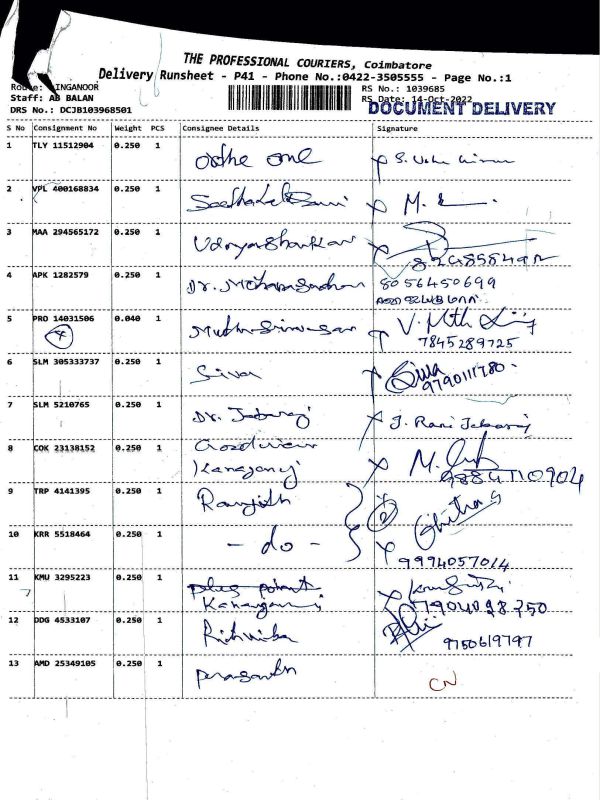 THE PROFESSIONAL COURIERS, Coimbatore
Delivery Runsheet - P41 - Phone No.:0422-3505555 - Page No.:1
INGANOOR
RS No.: 1039685
Staff: AB BALAN
RS Date: 14-Oct-2022
DOCUMENT DELIVERY
DRS No.: DCJB103968501
S No Consignment No Weight PCS Consignee Details Signature
1 TLY 11512904 0.250 1 one
2 VPL 400168834 0.250 1 M.
3 MAA 294565172 0.250 1 Udayashankar
4 APK 1282579 0.250 1 Dr. 8056450699
5 PRO 14031506 0.040 1 V.
7845289725
6 SLM 305333737 0.250 1 Siva Siva
9790111780
7 SLM 5210765 0.250 1 Dr. Jebaraj J. Rani Jebaraj
8 COK 23138152 0.250 1 M.
9 TRP 4141395 0.250 1 Ranjith 2 Chitra
10 KRR 5518464 0.250 1 - do -
9994057014
11 KMU 3295223 0.250 1 plus point
12 DDG 4533107 0.250 1
9750619797
13 AMD 25349105 0.250 1 prasanth
CN